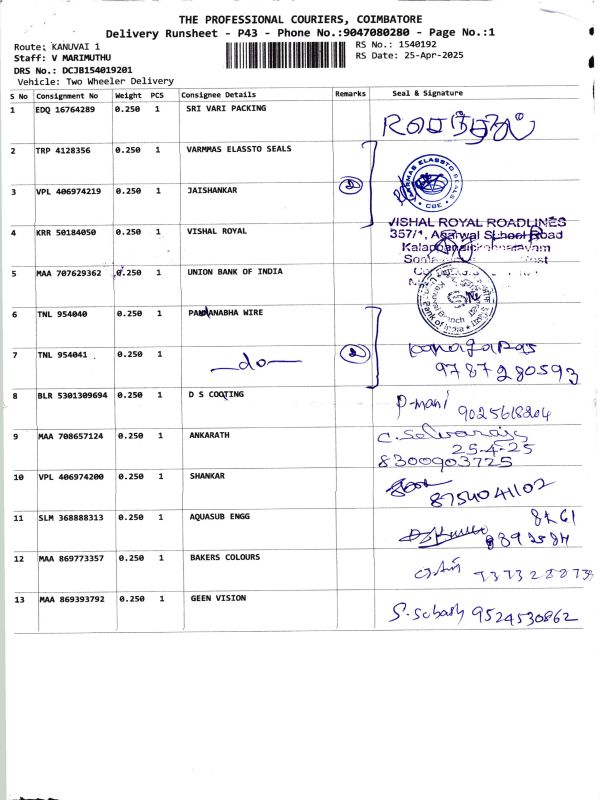 THE PROFESSIONAL COURIERS, COIMBATORE
Delivery Runsheet - P43 - Phone No.:9047080280 - Page No.:1
Route: KANUVAI 1
RS No.: 1540192
Staff: V MARIMUTHU
RS Date: 25-Apr-2025
DRS No.: DCJB154019201
Vehicle: Two Wheeler Delivery
S No Consignment No Weight PCS Consignee Details Remarks Seal & Signature
1 EDQ 16764289 0.250 1 SRI VARI PACKING
2 TRP 4128356 0.250 1 VARMMAS ELASSTO SEALS
VARMMAS ELASSTO SEALS
CBE
3 VPL 406974219 0.250 1 JAISHANKAR
4 KRR 50184050 0.250 1 VISHAL ROYAL
VISHAL ROYAL ROADLINES
357/1, Agarwal School Road
5 MAA 707629362 0.250 1 UNION BANK OF INDIA
Kanuvai Branch
Bank of India
6 TNL 954040 0.250 1 PADMANABHA WIRE
7 TNL 954041 0.250 1 —do— 2
9787280593
8 BLR 5301309694 0.250 1 D S COOTING P-mani 9025618204
9 MAA 708657124 0.250 1 ANKARATH C. Selvaraj
25-4-25
8300903725
10 VPL 406974200 0.250 1 SHANKAR 8754041102
11 SLM 368888313 0.250 1 AQUASUB ENGG
12 MAA 869773357 0.250 1 BAKERS COLOURS
13 MAA 869393792 0.250 1 GEEN VISION S. Subash 9524530862